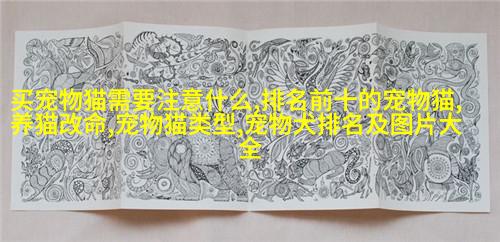 买宠物猫需要注意什么,排名前十的宠物猫,
养猫改命,宠物猫类型,宠物犬排名及图片大
全